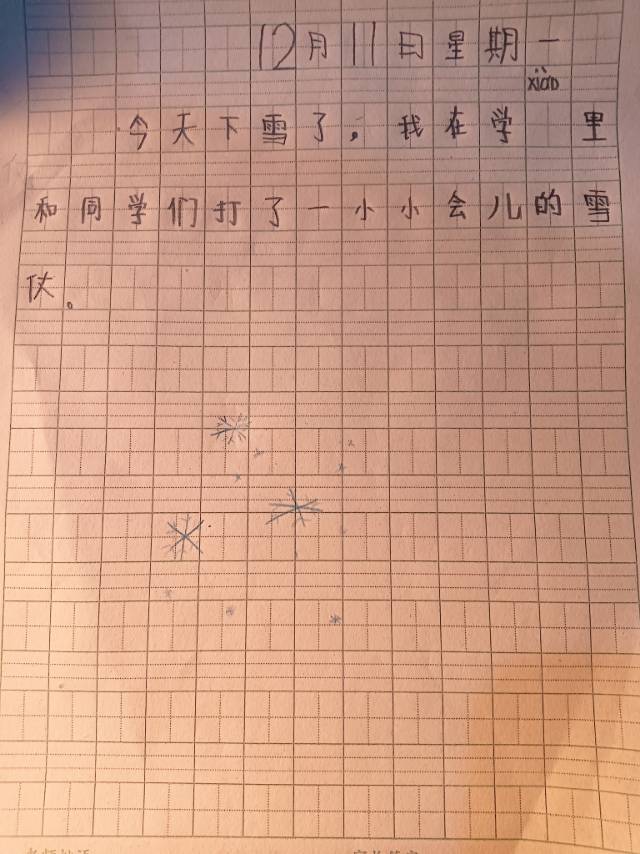 12月11日星期一
xiào
今天下雪了，我在学 里
和同学们打了一小小会儿的雪
仗。